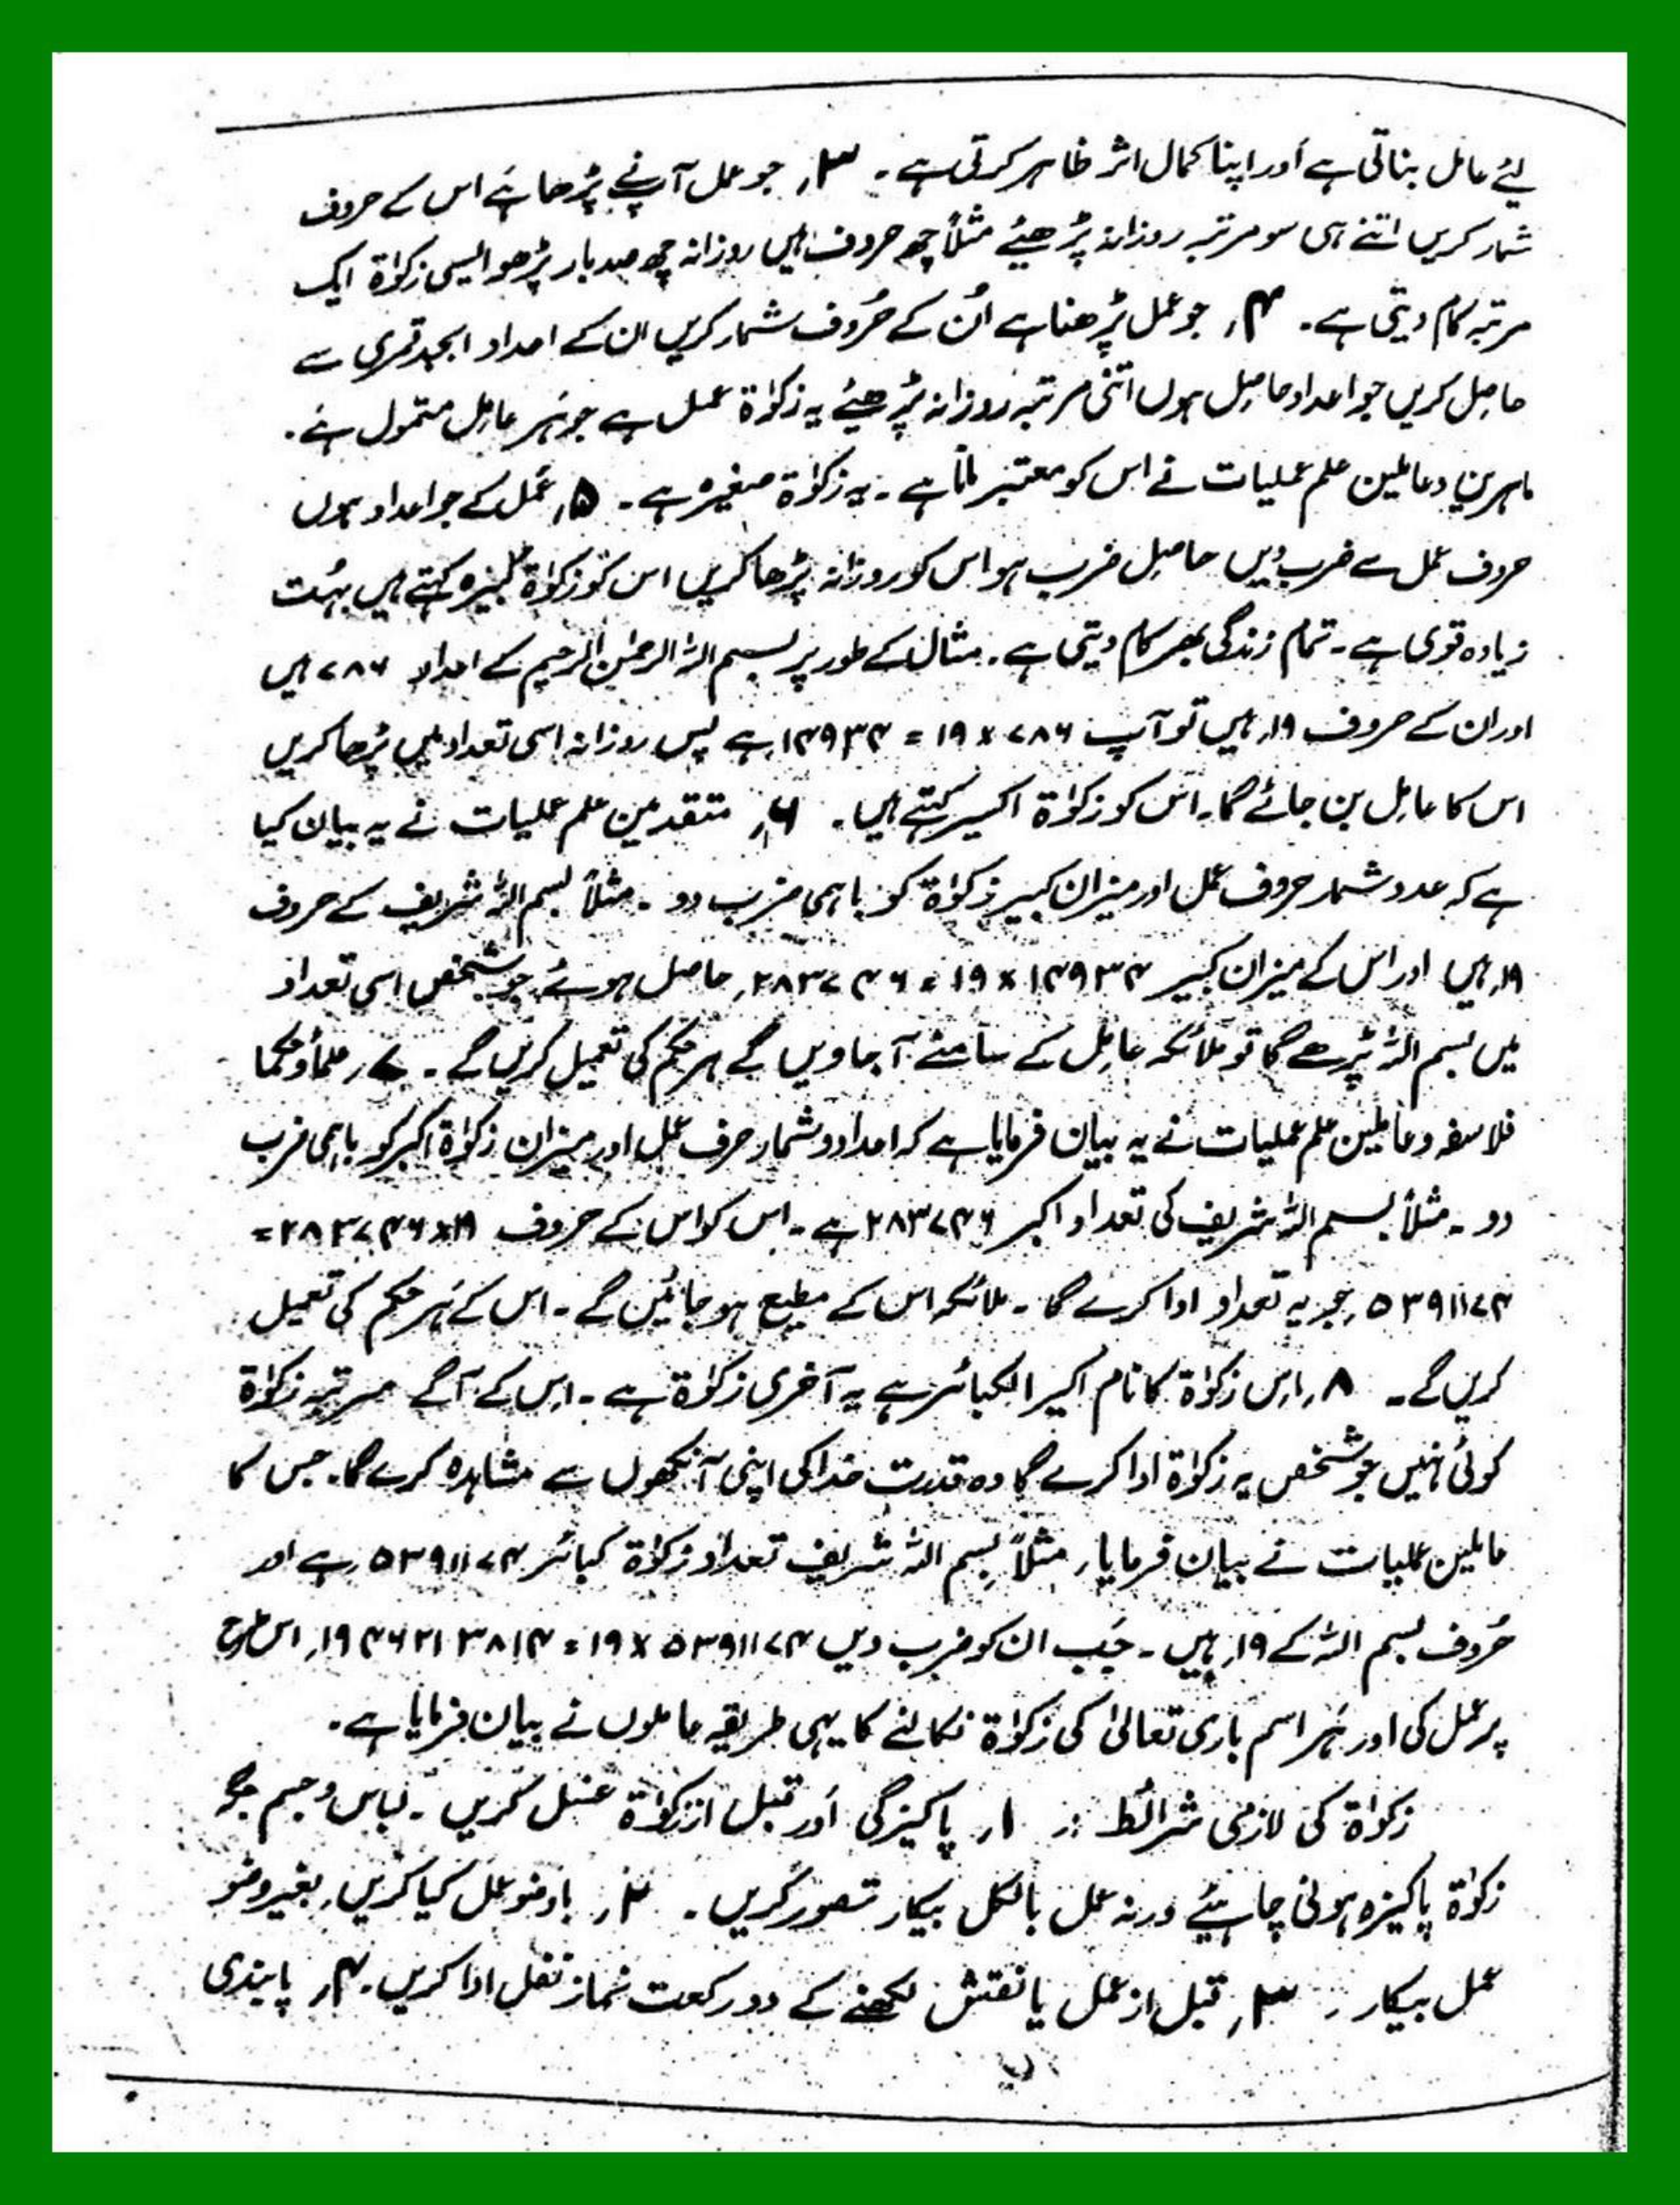 لئے عامل بناتی ہے اور اپنا کمال اثر ظاہر کرتی ہے۔ ۳ر جو عمل آپ نے پڑھا ہے اس کے حروف
شمار کریں اتنے ہی سو مرتبہ روزانہ پڑھیئے مثلاً چھ حروف ہیں روزانہ چھ صد بار پڑھو ایسی زکوٰۃ ایک
مرتبہ کام دیتی ہے۔ ۴ر جو عمل پڑھنا ہے اُن کے حُروف شمار کریں ان کے اعداد ابجد قمری سے
حاصل کریں جو اعداد حاصل ہوں اتنی مرتبہ روزانہ پڑھیئے یہ زکوٰۃ عمل ہے جو ہر عامل متمول ہے۔
ماہرین و عاملین علم عملیات نے اس کو معتبر مانا ہے۔ یہ زکوٰۃ صغیرہ ہے۔ ۵ر عمل کے جو اعداد ہوں
حروف عمل سے ضرب دیں حاصل ضرب ہو اس کو روزانہ پڑھا کریں اس کو زکوٰۃ کبیرہ کہتے ہیں بہت
زیادہ قوی ہے۔ تمام زندگی بھر کام دیتی ہے۔ مثال کے طور پر بسم اللہ الرحمٰن الرحیم کے اعداد ۷۸۶ ہیں
اور ان کے حروف ۱۹ر ہیں تو آپ ۷۸۶ x ۱۹ = ۱۴۹۳۴ر ہے پس روزانہ اسی تعداد میں پڑھا کریں
اس کا عامل بن جائے گا۔ اس کو زکوٰۃ اکسیر کہتے ہیں۔ ۶ر متقدمین علم عملیات نے یہ بیان کیا
ہے کہ عدد شمار حروف عمل اور میزان کبیر زکوٰۃ کو باہمی ضرب دو۔ مثلاً بسم اللہ شریف کے حروف
۱۹ر ہیں اور اس کے میزان کبیر ۱۴۹۳۴ x ۱۹ = ۲۸۳۷۴۶ر حاصل ہوئے جو شخص اسی تعداد
میں بسم اللہ پڑھے گا تو ملائکہ عامل کے سامنے آ جاویں گے ہر حکم کی تعمیل کریں گے۔ ۷ر علماً و حکما
فلاسفہ و عاملین علم عملیات نے یہ بیان فرمایا ہے کہ اعداد و شمار حرف عمل اور میزان زکوٰۃ اکبر کو باہمی ضرب
دو۔ مثلاً بسم اللہ شریف کی تعداد اکبر ۲۸۳۷۴۶ ہے۔ اس کو اس کے حروف ۱۹x۲۸۳۷۴۶ =
۵۳۹۱۱۷۴ر جو یہ تعداد ادا کرے گا۔ ملائکہ اس کے مطیع ہو جائیں گے۔ اس کے ہر حکم کی تعمیل
کریں گے۔ ۸ر اس زکوٰۃ کا نام اکبر الکبائر ہے یہ آخری زکوٰۃ ہے۔ اس کے آگے مرتبہ زکوٰۃ
کوئی نہیں جو شخص یہ زکوٰۃ ادا کرے گا وہ قدرت خدا کی اپنی آنکھوں سے مشاہدہ کرے گا۔ جس کا
عاملین عملیات نے بیان فرمایا ر مثلاً بسم اللہ شریف تعداد زکوٰۃ کبائر ۵۳۹۱۱۷۴ر ہے اور
حُروف بسم اللہ کے ۱۹ر ہیں۔ جب ان کو ضرب دیں ۵۳۹۱۱۷۴ x ۱۹ = ۱۹۴۶۲۱۳۸۱۴ر اس طرح
پر عمل کی اور ہر اسم باری تعالیٰ کی زکوٰۃ نکالنے کا یہی طریقہ عاملوں نے بیان فرمایا ہے۔
زکوٰۃ کی لازمی شرائط :۔ ۱ر پاکیزگی اور قبل از زکوٰۃ غسل کریں۔ لباس و جسم
زکوٰۃ پاکیزہ ہونی چاہیئے ورنہ عمل بالکل بیکار تصور کریں۔ ۲ر باوضو عمل کیا کریں۔ بغیر وضو
عمل بیکار۔ ۳ر قبل از عمل یا نقش لکھنے کے دو رکعت نماز نفل ادا کریں۔ ۴ر پابندی